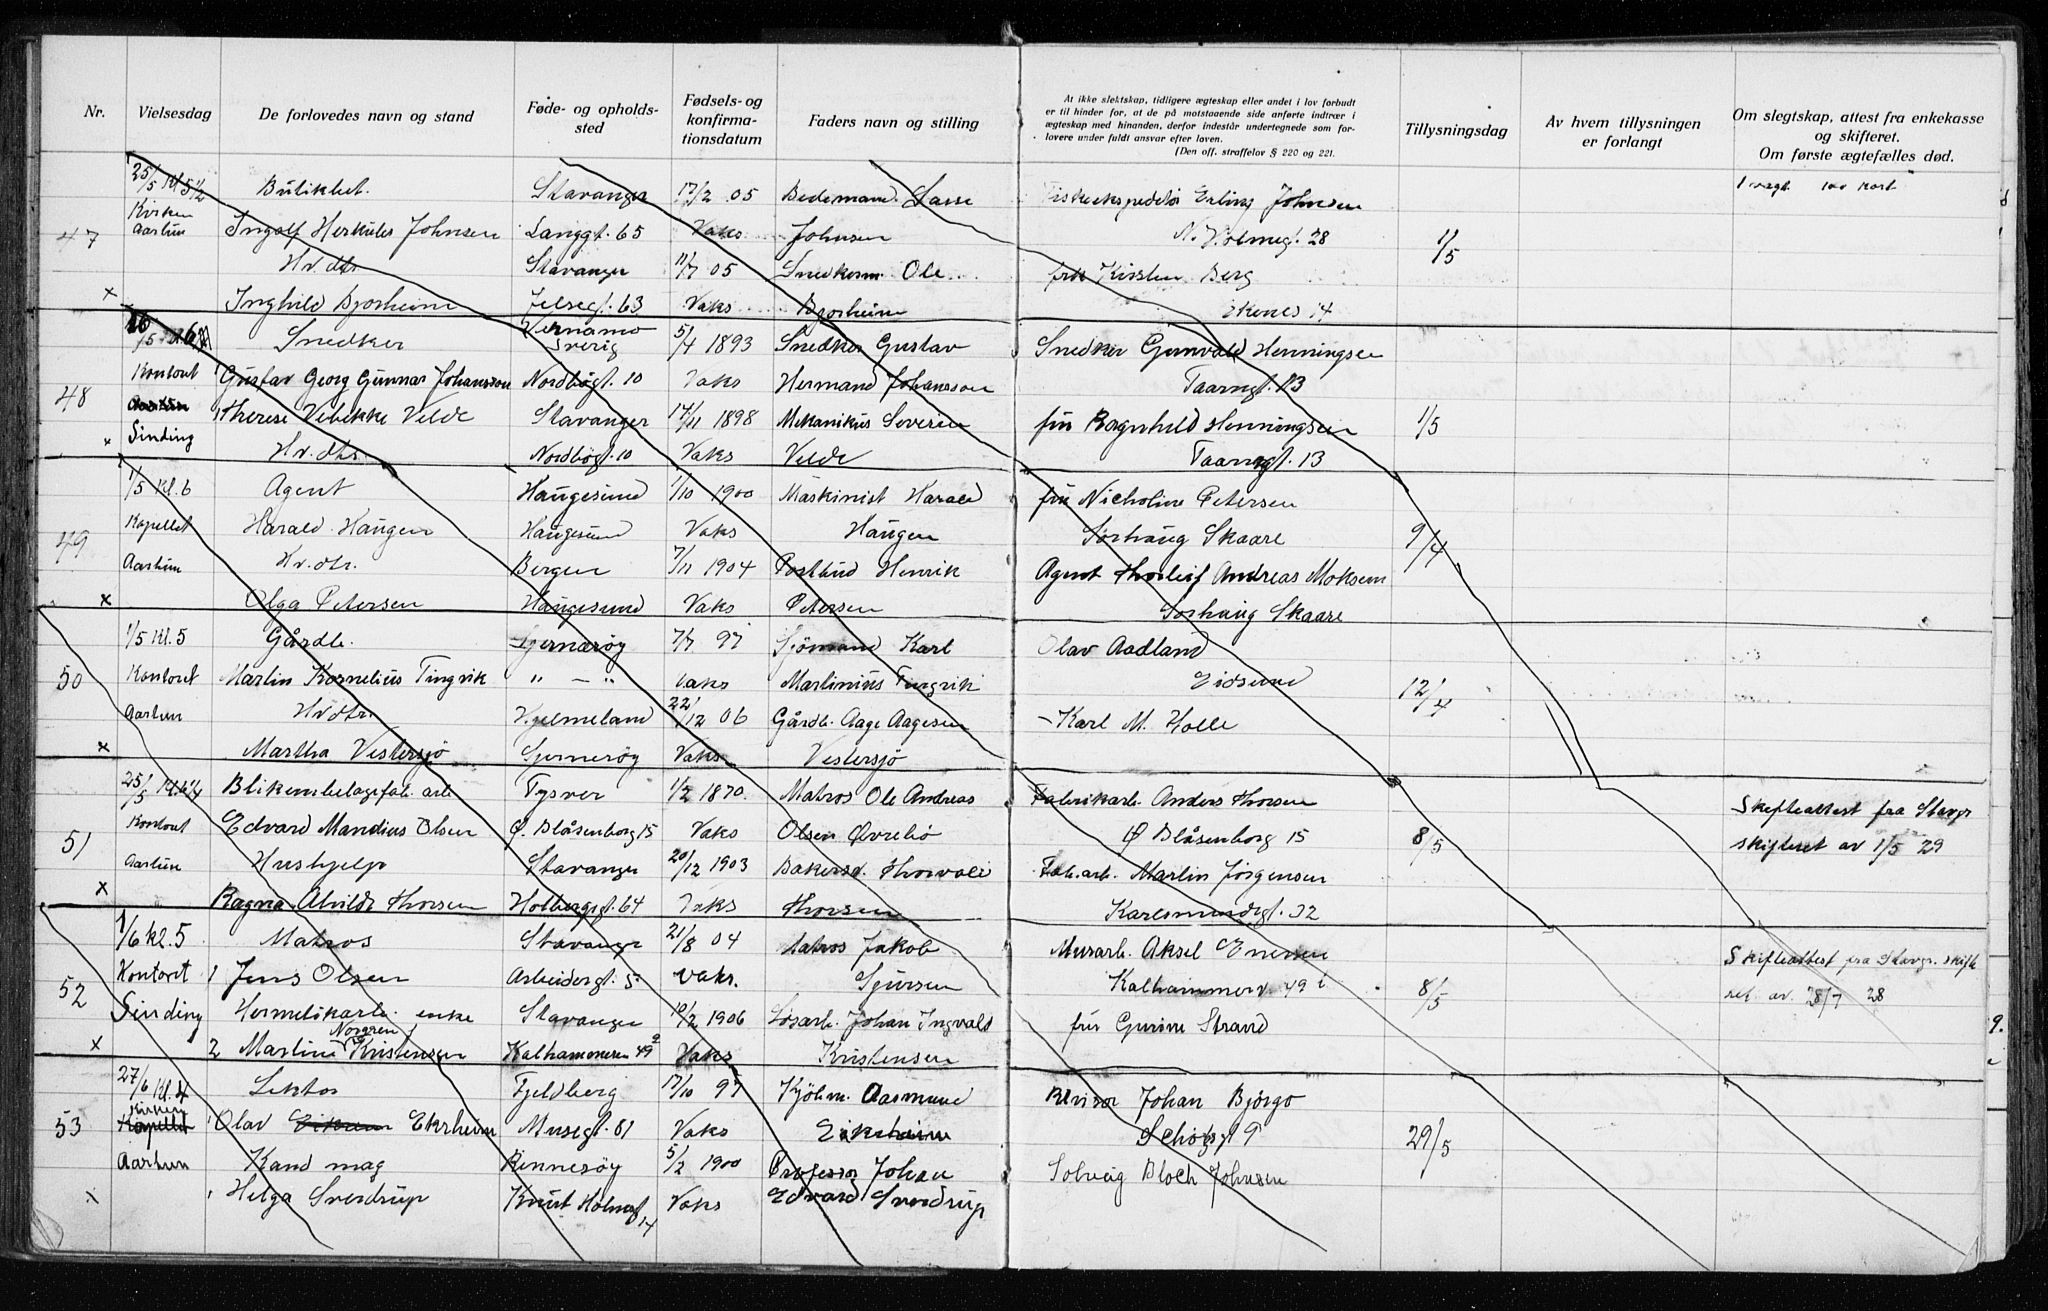 Nr. Vielsesdag De forlovedes navn og stand Føde- og opholds-sted Fødsels- og konfirma-tionsdatum Faders navn og stilling At ikke slektskap, tidligere ægteskap eller andet i lov forbudt er til hinder for, at de på motstaaende side anførte indtrær i ægteskap med hinanden, derfor indestår undertegnede som for-lovere under fuldt ansvar efter loven. (Den off. straffelov § 220 og 221. Tillysningsdag Av hvem tillysningen er forlangt Om slegtskap, attest fra enkekasse og skifteret. Om første ægtefælles død.
25/5 Kl 5 1/2 Butikbet. Stavanger 17/2 05 Bedemand Lasse Fiskeekspeditør Erling Johnsen
47 Kirken Aarlun Ingolf Herkules Johnsen Langgt. 65 Vaks Johnsen N. Holmegt. 28 1/5
Hv. dtr. Stavanger 11/7 05 Snedkerm. Ole frk Kirsten Berg
x Inghild Bjorheim Jelsegt. 63 Vaks Bjorheim Ekenes 14
26/5 Snedker Vernamo Sverig 5/4 1893 Snedker Gustav Snedker Gunvald Henningsen
48 Kontoret Gustav Georg Gunnar Johansson Nordbøgt. 10 Vaks Hermand Johansson Taarngt. 13
Therese Vibekke Velde Stavanger 17/11 1898 Mekanikus Severin fru Ragnhild Henningsen 1/5
x Sinding Hv. dtr. Nordbøgt. 10 Vaks Velde Taarngt. 13
1/5 Kl. 6 Agent Haugesund 1/10 1900 Maskinist Harald fru Nicholine Petersen
49 Kapellet Harald Haugen Haugesund Vaks Haugen Sørhaug Skaare 9/4
Aarlun Hv. dtr. Bergen 7/11 1904 Postbud Henrik Agent Thorleif Andreas Moksem
x Olga Petersen Haugesund Vaks Petersen Sørhaug Skaare
1/5 Kl. 5 Gårdb. Sjernerøy 7/7 97 Sjømand Karl Olav Aadland
50 Kontoret Martin Kornelius Tingvik " — " Vaks Martinius Tingvik Eidsund 12/4
Aarlun Hv dtr. Hjelmeland 22/12 06 Gårdb. Aage Aagesen Karl M. Holle
x Martha Vestersjø Sjernerøy Vaks Vestersjø
25/5 Kl. 6 1/4 Blikembelagefab. arb Tysver 1/2 1870 Matros Ole Andreas Fabrikarb. Anders Thorsen Skifteattest fra Stavgr
51 Kontoret Edvard Mandius Olsen Ø. Blåsenborg 15 Vaks Olsen Øvrebø Ø Blåsenborg 15 8/5 skifteret av 1/5 29
Aarlun Hushjelp Stavanger 20/12 1903 Bakersv. Thorvald Fab. arb. Martin Jørgensen
x Ragna Alvilde Thorsen Holbergsgt. 64 Vaks Thorsen Karlsmindegt. 32
1/6 kl. 5 Matros Stavanger 21/8 04 Matros Jakob Murarb. Aksel Enersen Skifteattest fra Stavgr. skifte
52 Kontoret 1 Jens Olsen Arbeidergt. 5 Vaks. Sjursen Kalhammerv. 49 8/5 ret. av 28/7 28
Sinding Hermetikarb. enke Stavanger 10/2 1906 Løsarb. Johan Ingvald fru Gurine Strand
x 2 Martine Norgren Kristensen Kalhammeren 49 Vaks Kristensen
27/6 Kl. 4 Lektor Fjeldberg 17/10 97 Kjøbm. Aasmund Revisor Johan Bjørgo
53 Kirken Kapellet Olav Ekrheim Musegt. 81 Vaks Schøgt 9 29/5
Aarlun Kand mag Rennesøy 5/2 1900 Professor Johan Solveig Bloch Johnsen
x Helga Sverdrup Knut Holmsgt 14 Vaks Edvard Sverdrup